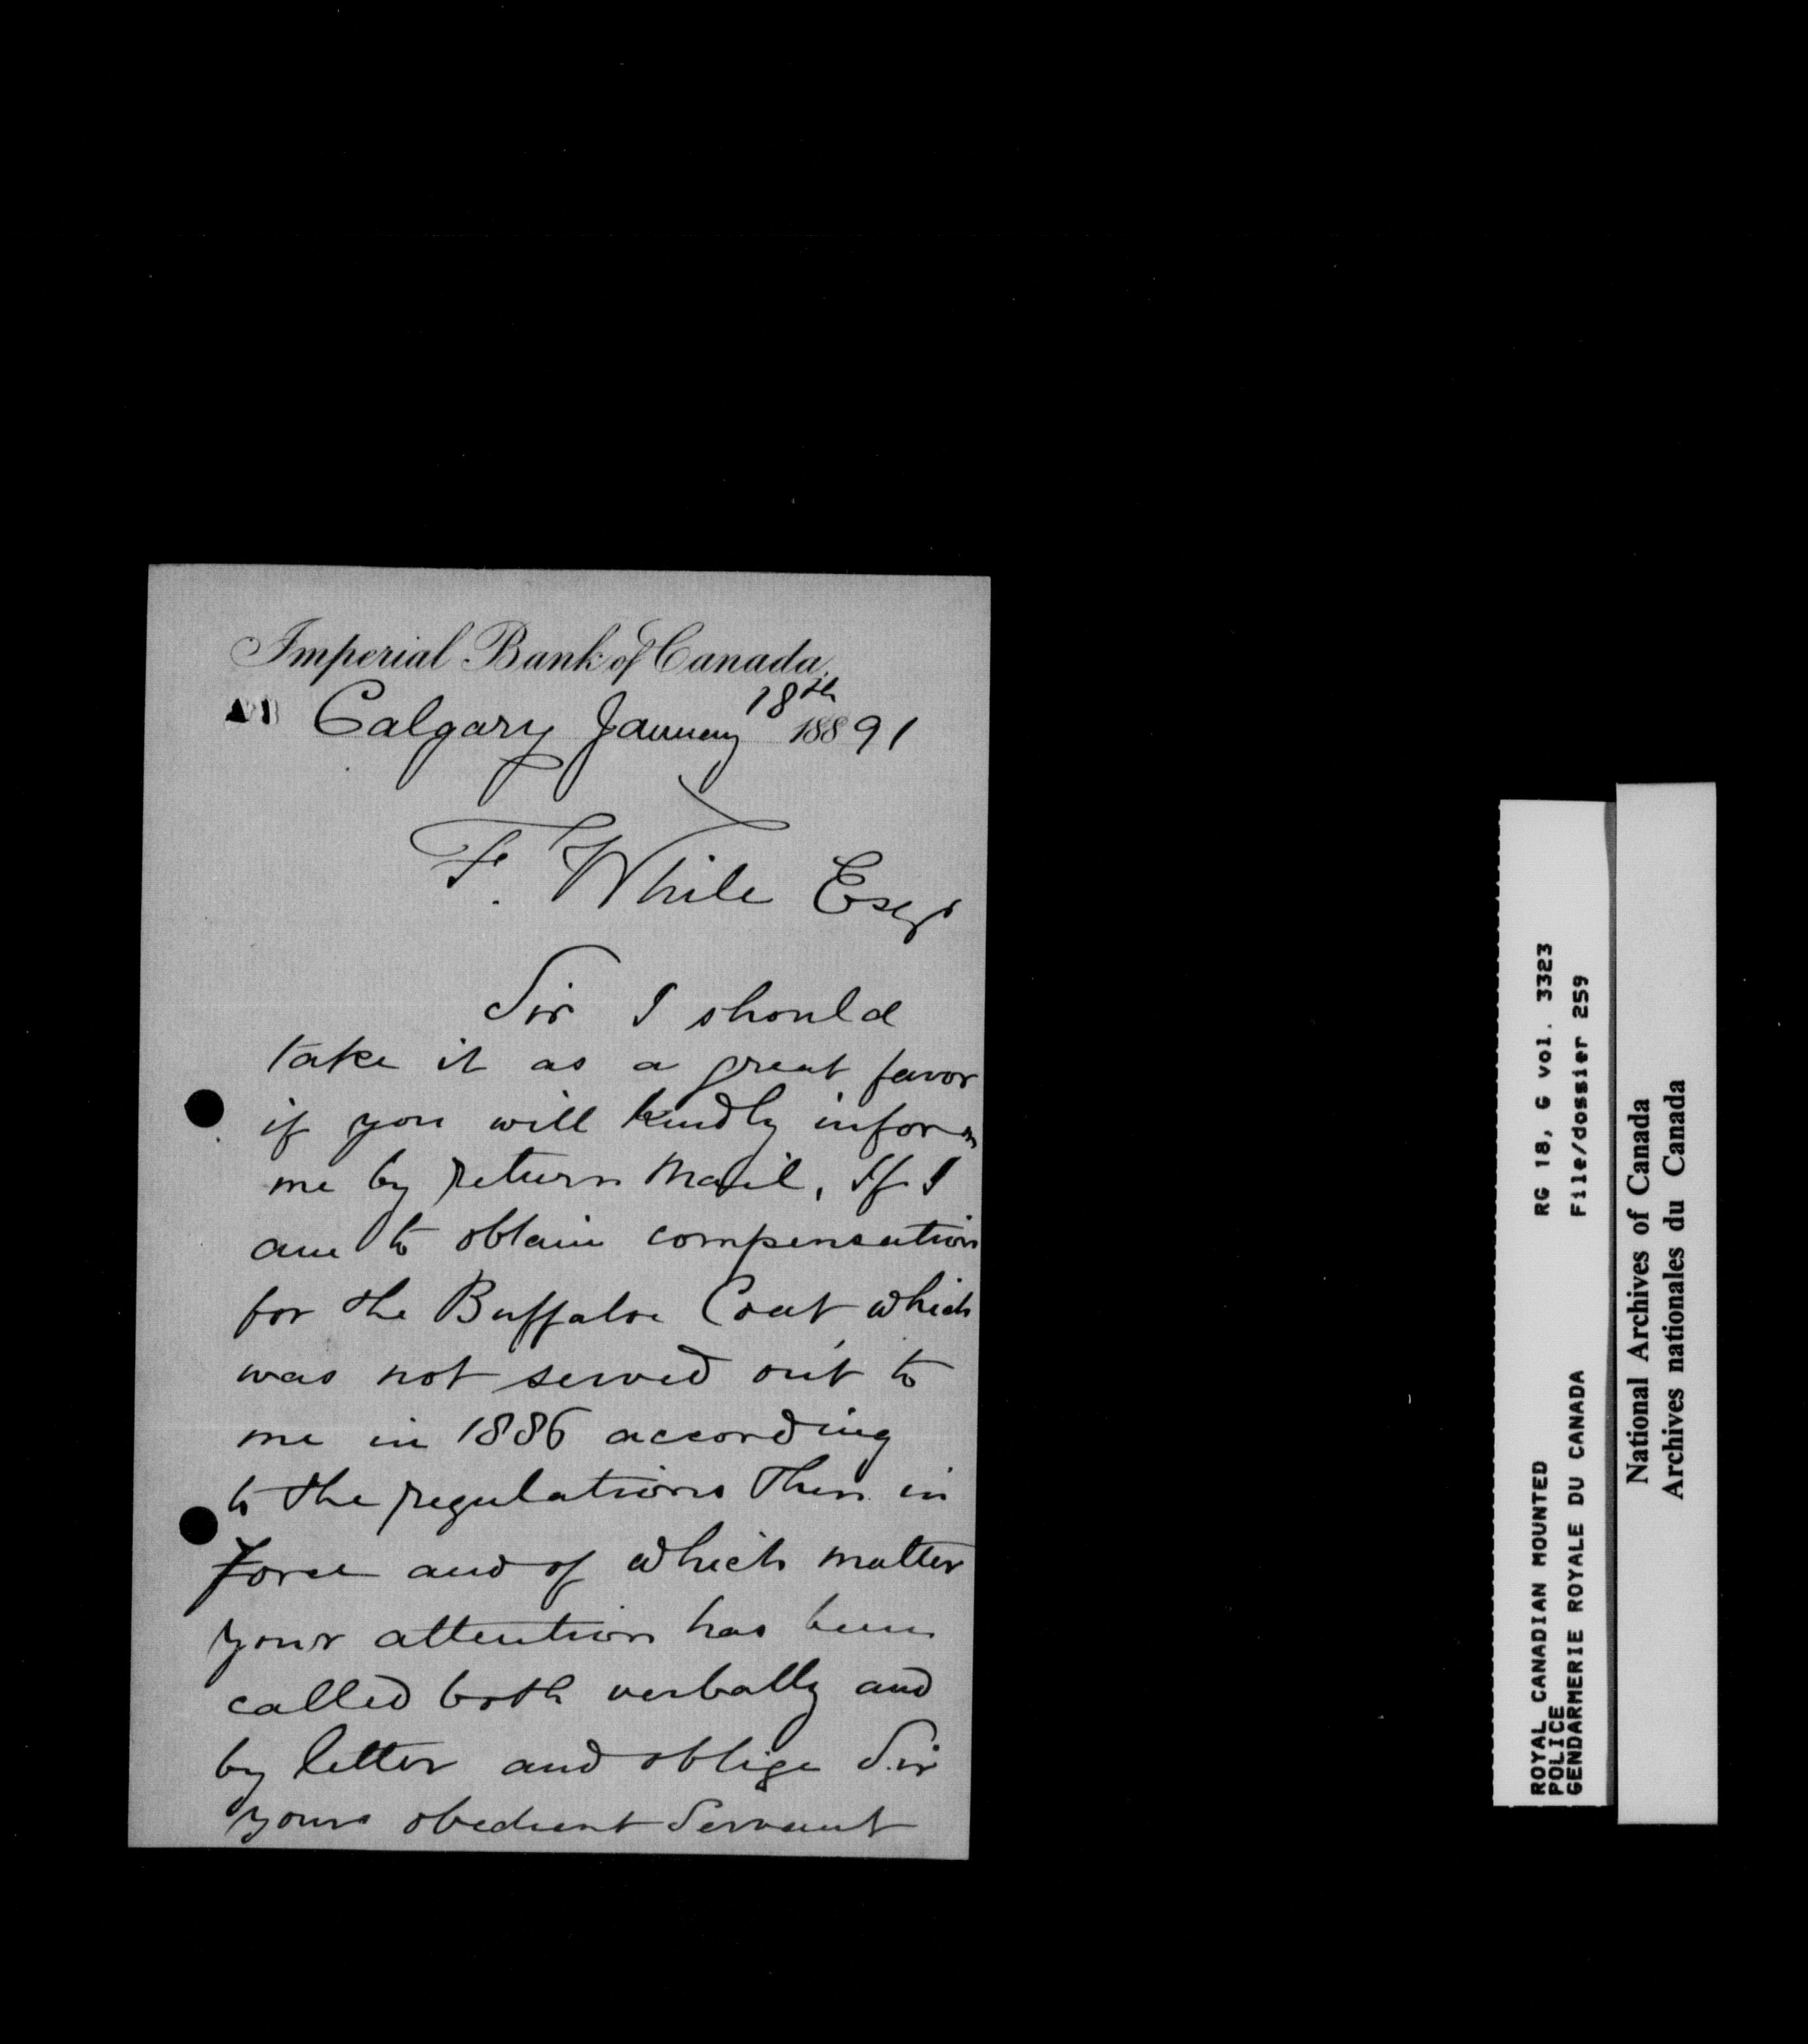 Imperial Bank of Canada,
Calgary January 18th 18891
F. White Esqr
Sir I should
take it as a great favor
if you will kindly inform
me by return Mail, If I
am to obtain compensation
for the Buffaloe Coat which
was not served out to
me in 1886 according
to the regulations then in
Force and of which matter
your attention has been
called both verbally and
by letter and oblige Sir
yours obedient Servant
ROYAL CANADIAN MOUNTED RG 18, G vol. 3323
POLICE
GENDARMERIE ROYALE DU CANADA File/dossier 259
National Archives of Canada
Archives nationales du Canada